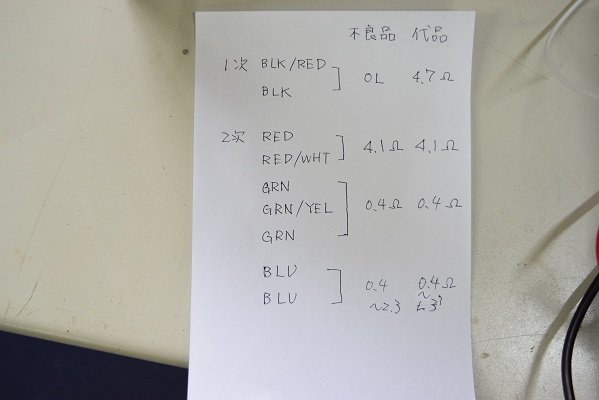 不良品 代品
1次 BLK/RED
BLK
OL 4.7Ω
2次 RED
RED/WHT
4.1Ω 4.1Ω
GRN
GRN/YEL
GRN
0.4Ω 0.4Ω
BLU
BLU
0.4 0.4Ω
~2.3 ~